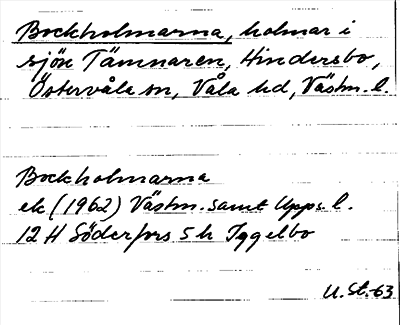 Bockholmarna, holmar i
sjön Tämnaren, Hindersbo,
Östervåla sn, Våla hd, Västm. l.
Bockholmarna
ek (1962) Västm. samt Upps. l.
12 H Söderfors 5 h Iggelbo
U. St. 63